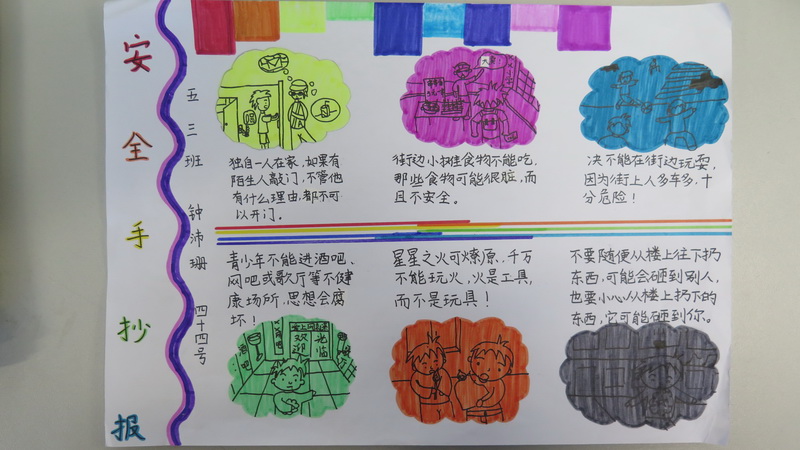 安全手抄报
五三班 钟沛珊 四十四号
独自一人在家,如果有
陌生人敲门,不管他
有什么理由,都不可
以开门。
街边小摊食物不能吃,
那些食物可能很脏,而
且不安全。
决不能在街边玩耍,
因为街上人多车多,十
分危险!
青少年不能进酒吧、
网吧或歌厅等不健
康场所,思想会腐
坏!
星星之火可燎原,千万
不能玩火,火是工具,
而不是玩具!
不要随便从楼上往下扔
东西,可能会砸到别人,
也要小心从楼上扔下的
东西,它可能砸到你。
欢迎
光临